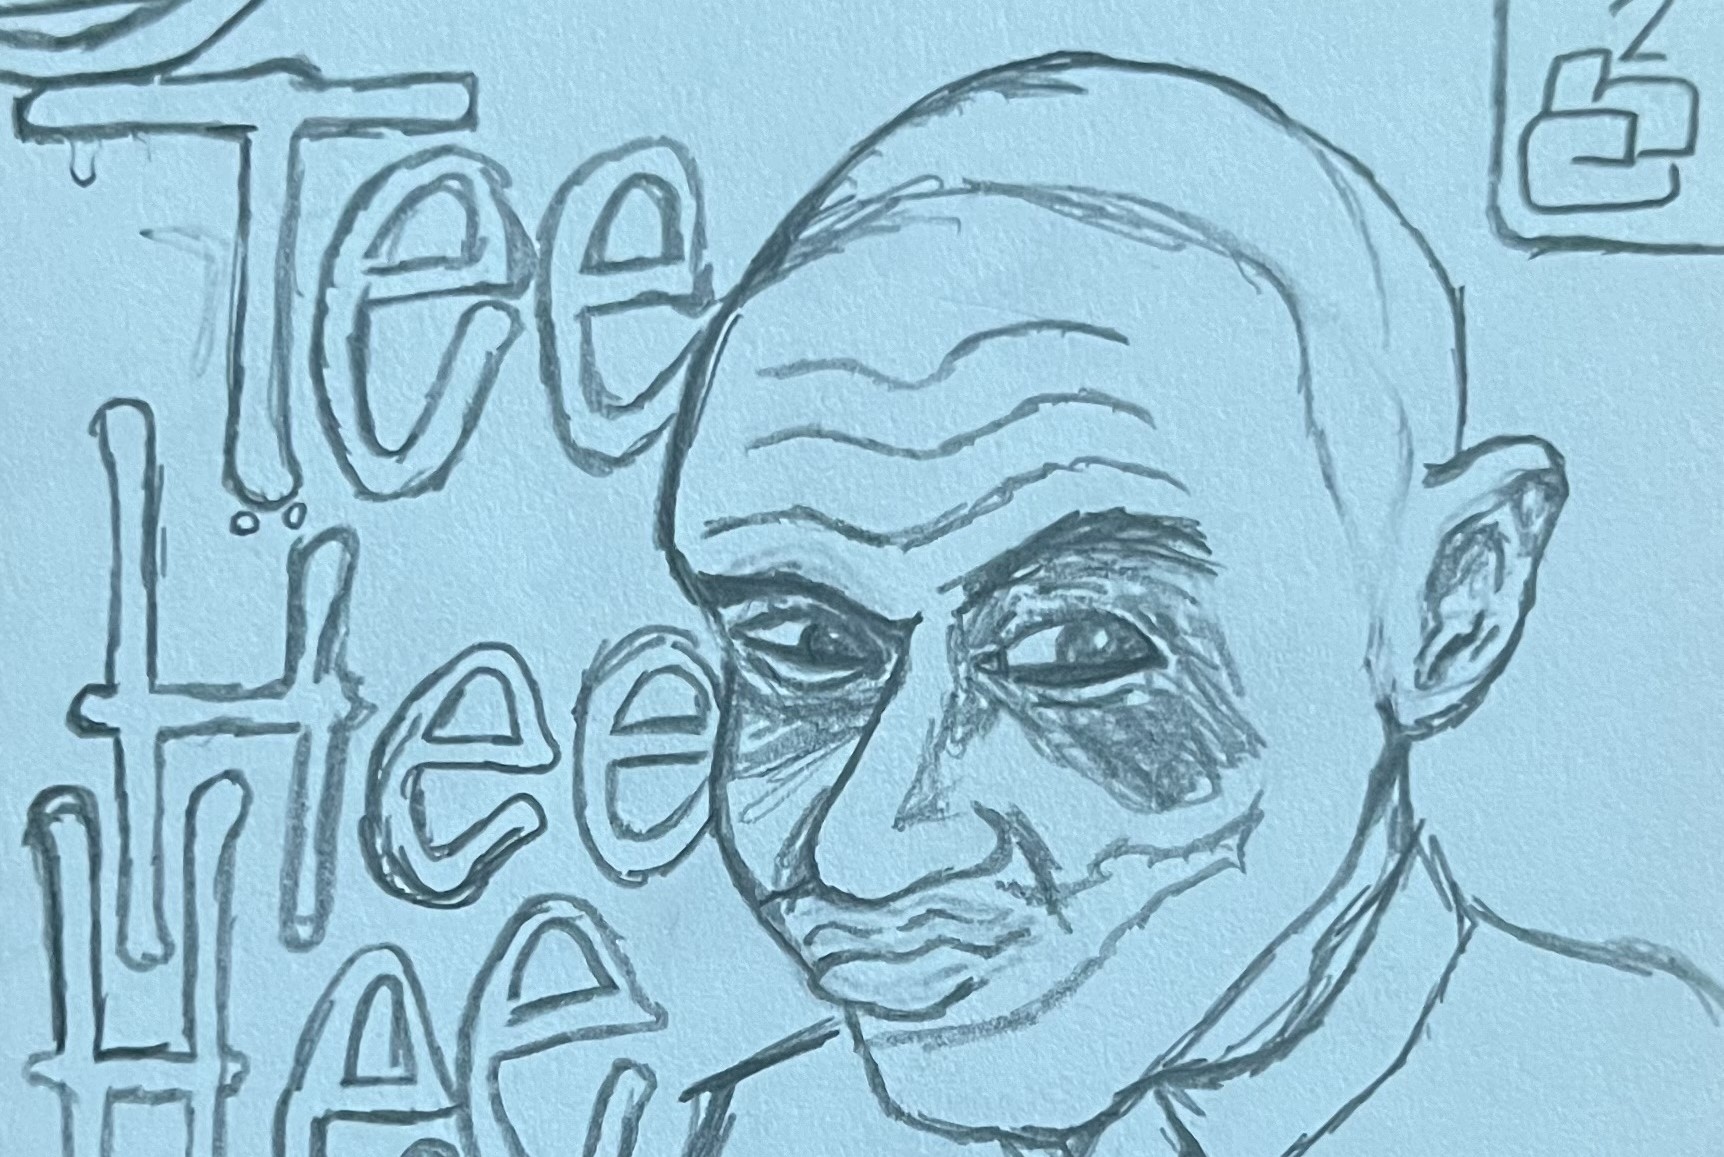 Tee
Hee
Hee
2